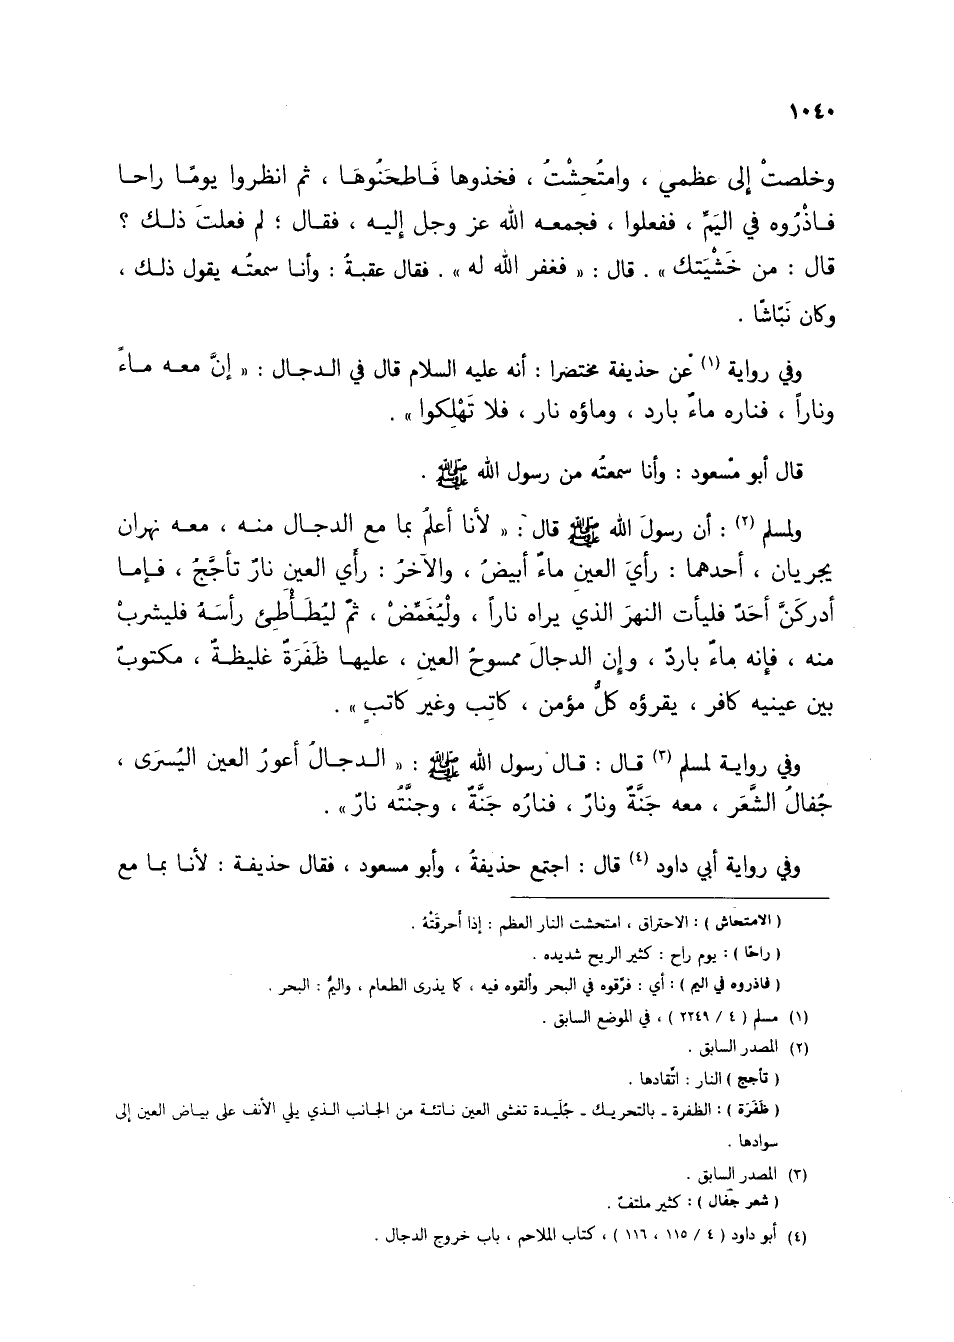 ١٠٤٠
وخلصتْ إلى عظمي ، وامتُحِشْتُ ، فخذوها فَاطحَنُوهَا ، ثم انظروا يومًا راحا
فاذْرُوه في اليَمِّ ، ففعلوا ، فجمعه الله عز وجل إليه ، فقال : لم فعلتَ ذلك ؟
قال : من خَشْيَتك » . قال : « فغفر الله له » . فقال عقبةُ : وأنا سمعتُه يقول ذلك ،
وكان نَبّاشًا .
وفي رواية (١) عن حذيفة مختصرا : أنه عليه السلام قال في الدجال : « إنَّ معه ماءً
وناراً ، فناره ماءٌ بارد ، وماؤه نار ، فلا تَهْلِكوا » .
قال أبو مسعود : وأنا سمعتُه من رسول الله ﷺ .
ولمسلم (٢) : أن رسولَ الله ﷺ قال : « لأنا أعلمُ بما مع الدجال منه ، معه نهران
يجريان ، أحدهما : رأيَ العينِ ماءٌ أبيضُ ، والآخرُ : رأي العينِ نارٌ تأجَّجُ ، فإما
أدركَنَّ أحَدٌ فليأت النهرَ الذي يراه ناراً ، ولْيُغَمِّضْ ، ثمّ ليُطَأْطِئ رأسَهُ فليشربْ
منه ، فإنه ماءٌ باردٌ ، وإن الدجالَ ممسوحُ العينِ ، عليها ظَفَرَةٌ غليظةٌ ، مكتوبٌ
بين عينيه كافر ، يقرؤه كلُّ مؤمن ، كاتِب وغير كاتبٍ » .
وفي رواية لمسلم (٣) قال : قال رسول الله ﷺ : « الدجالُ أعورُ العين اليُسرَى ،
جُفالُ الشَّعَر ، معه جَنَّةٌ ونارٌ ، فنارُه جَنَّةٌ ، وجنَّتُه نارٌ » .
وفي رواية أبي داود (٤) قال : اجتمع حذيفةُ ، وأبو مسعود ، فقال حذيفة : لأنا بما مع
( الامتحاش ) : الاحتراق ، امتحشت النار العظم : إذا أحرقَتْهُ .
( راحًا ) : يوم راح : كثير الريح شديده .
( فاذروه في اليم ) : أي : فرّقوه في البحر وألقوه فيه ، كما يذرى الطعام ، واليمُّ : البحر .
(١) مسلم ( ٤ / ٢٢٤٩ ) ، في الموضع السابق .
(٢) المصدر السابق .
( تأجج ) النار : اتّقادها .
( ظَفَرَة ) : الظفرة ـ بالتحريك ـ جُلَيدة تغشى العين ناتئة من الجانب الذي يلي الأنف على بياض العين إلى
سوادها .
(٣) المصدر السابق .
( شعر جفال ) : كثير ملتفّ .
(٤) أبو داود ( ٤ / ١١٥ ، ١١٦ ) ، كتاب الملاحم ، باب خروج الدجال .